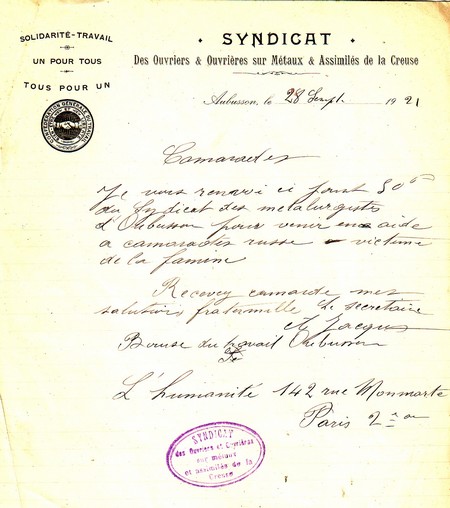 SOLIDARITÉ-TRAVAIL
UN POUR TOUS
TOUS POUR UN
CONFÉDÉRATION GÉNÉRALE DU TRAVAIL
SYNDICAT
Des Ouvriers & Ouvrières sur Métaux & Assimilés de la Creuse
Aubusson, le 28 Sept 1921
Camarades
Je vous renvoi ci joint 50 f
du Syndicat des metalurgistes
d'Aubusson pour venir en aide
a camarades russe victime
de la famine
Recevez camarde mes
salutions fraternille Le secretaire
A Jacques
Bourse du travail Aubusson
L'humanité 142 rue Monmarte
Paris 2
SYNDICAT
des Ouvriers et Ouvrières
sur métaux
et assimilés de la
Creuse